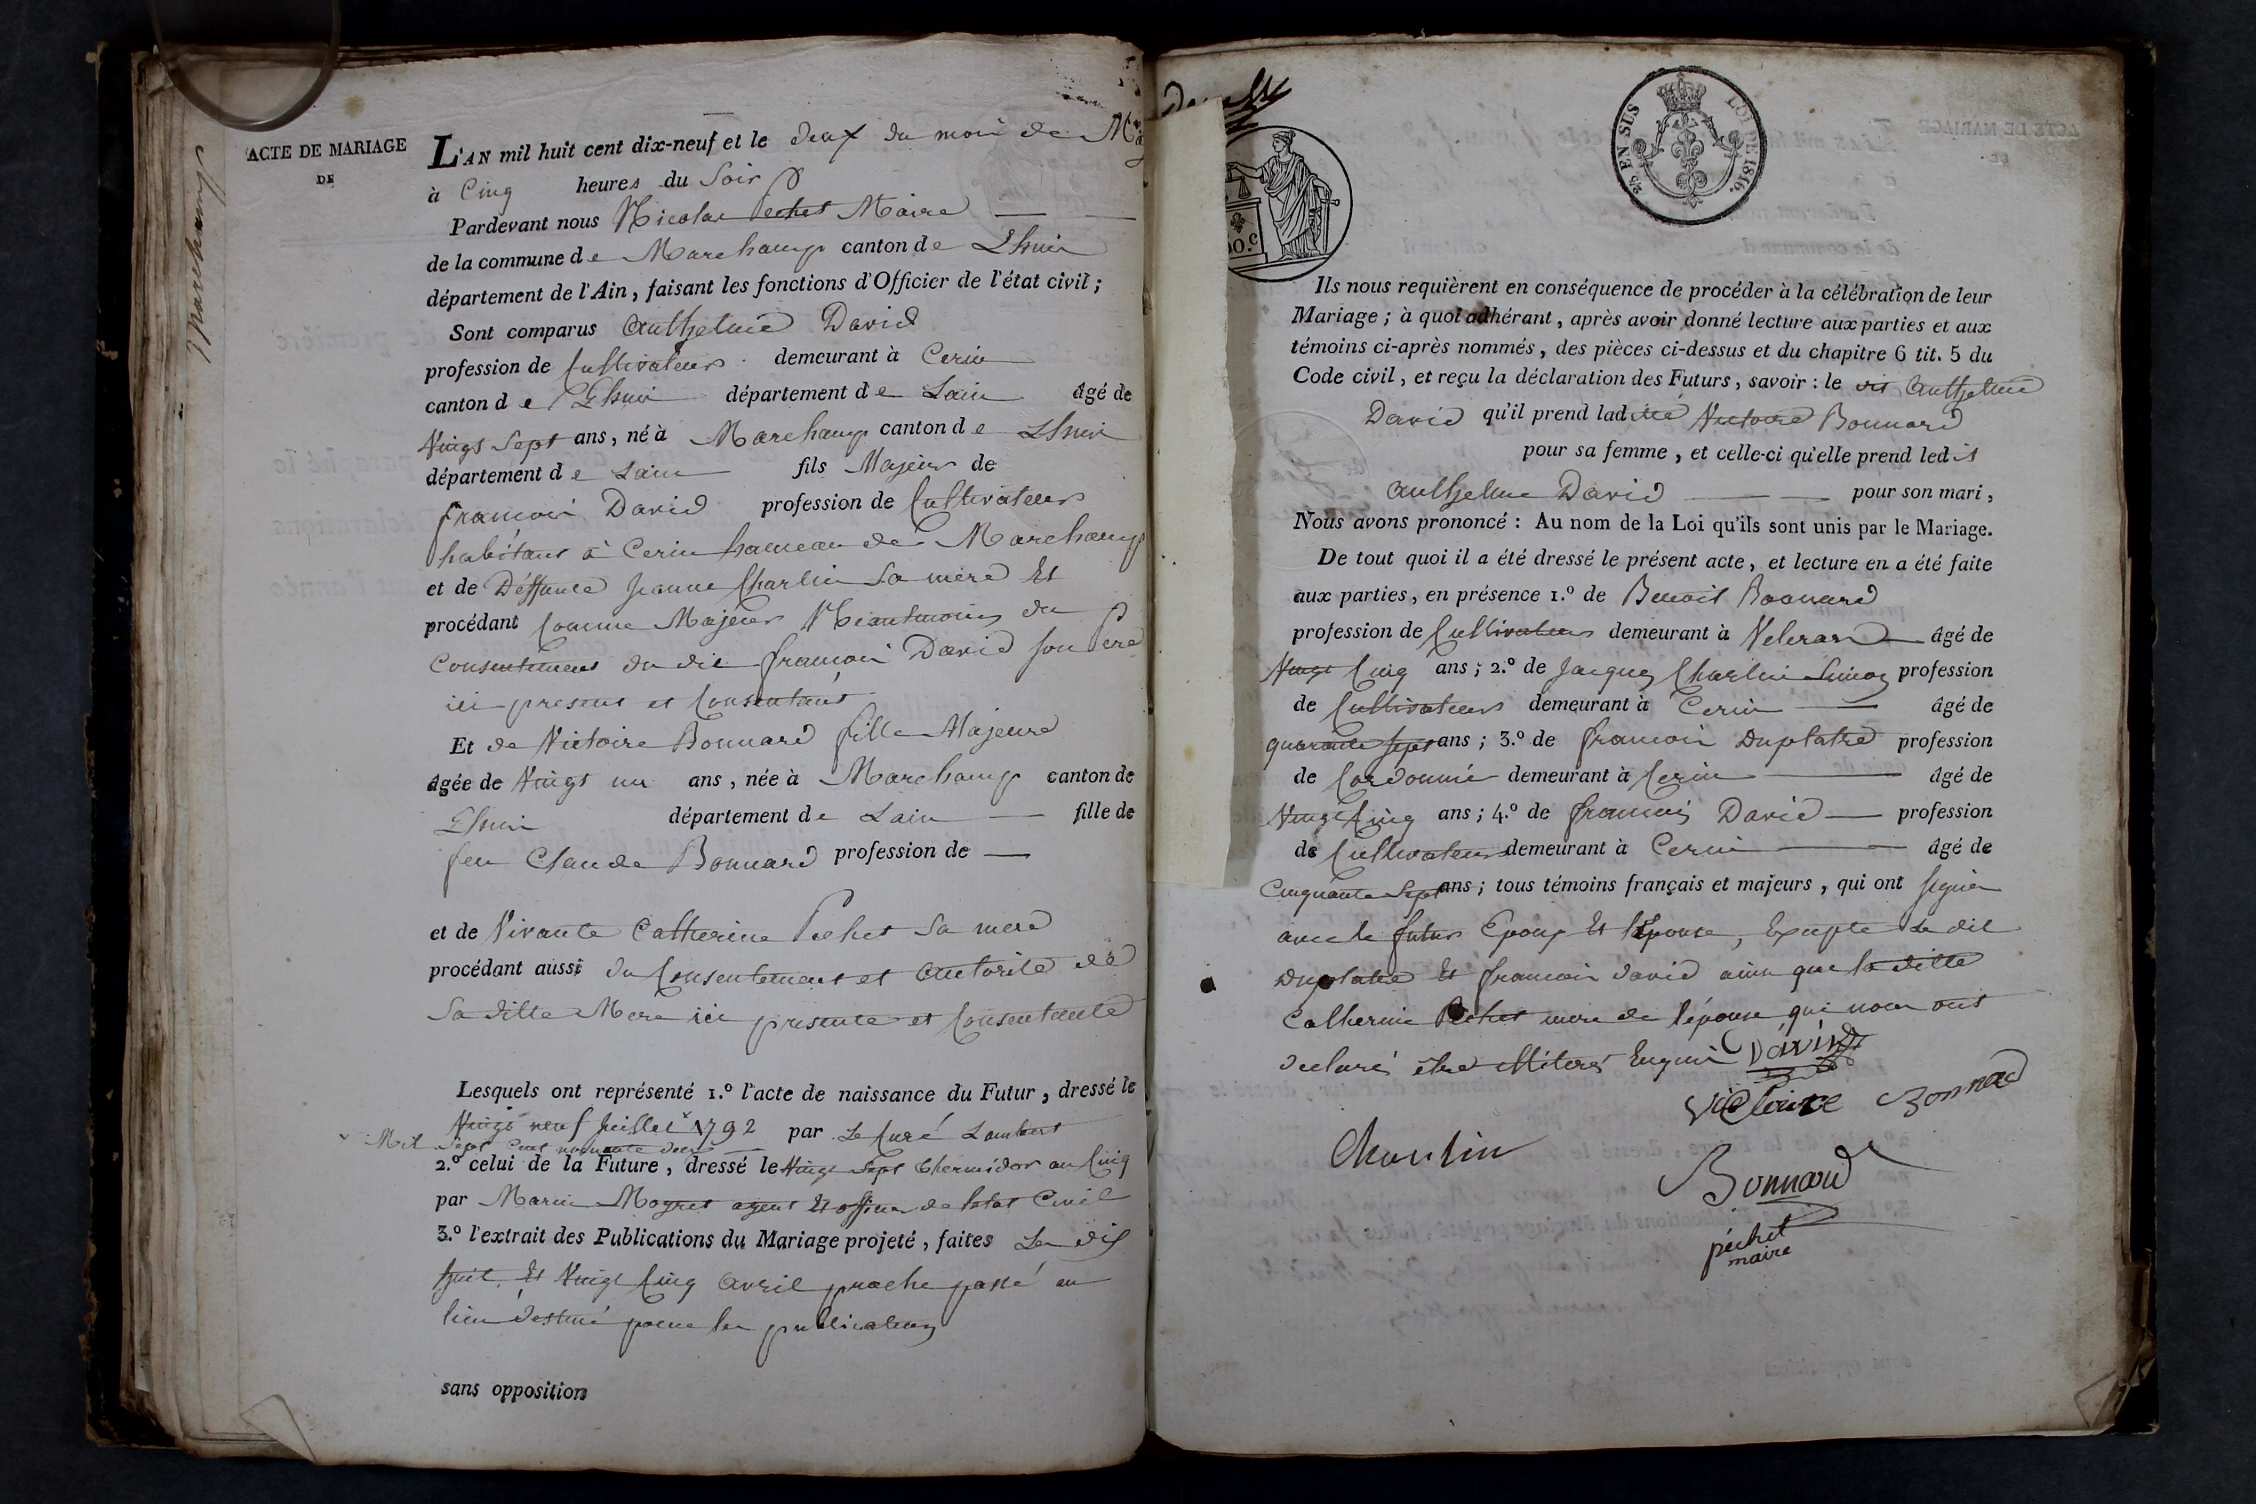 Marchamp
ACTE DE MARIAGE
DE
L'AN mil huit cent dix-neuf et le deux du mois de Mai
à Cinq heures du Soir
Pardevant nous Nicolas Pechet Maire
de la commune de Marchamp canton de Lhuis
département de l'Ain, faisant les fonctions d'Officier de l'état civil;
Sont comparus Anthelme David
profession de Cultivateur demeurant à Cerin
canton de Lhuis département de Lain âgé de
Vingt Sept ans, né à Marchamp canton de Lhuis
département de Lain fils Majeur de
francois David profession de Cultivateur
habitant à Cerin hameau de Marchamp
et de Déffunte Jeanne Charlin Sa mère Et
procédant Comme Majeur Néantmoins du
Consentement du dit francois David son Pere
ici present et Consentant
Et de Victoire Bonnard fille Majeure
âgée de Vingt un ans, née à Marchamp canton de
Lhuis département de Lain fille de
feu Claude Bonnard profession de
et de Vivante Catherine Pechet Sa mere
procédant aussi du Consentement et Autorité de
Sa ditte Mere ici presente et Consentente
Lesquels ont représenté 1.º l'acte de naissance du Futur, dressé le
Vingt neuf Juillet 1792 par Le Curé Lambert
Mil Sept Cent nonante deux
2.º celui de la Future, dressé le Vingt Sept thermidor an Cinq
par Marin Mognet agent Et officier de letat Civil
3.º l'extrait des Publications du Mariage projeté, faites Le dix
huit Et Vingt Cinq Avril proche passé au
lieu destiné pour les publications
sans opposition
EN SUS
LOI DE 1816.
50.c
Ils nous requièrent en conséquence de procéder à la célébration de leur
Mariage; à quoi adhérant, après avoir donné lecture aux parties et aux
témoins ci-après nommés, des pièces ci-dessus et du chapitre 6 tit. 5 du
Code civil, et reçu la déclaration des Futurs, savoir: le dit Anthelme
David qu'il prend ladite Victoire Bonnard
pour sa femme, et celle-ci qu'elle prend ledit
Anthelme David pour son mari,
Nous avons prononcé: Au nom de la Loi qu'ils sont unis par le Mariage.
De tout quoi il a été dressé le présent acte, et lecture en a été faite
aux parties, en présence 1.º de Benoit Bonnard
profession de Cultivateur demeurant à Veleran âgé de
Vingt Cinq ans; 2.º de Jacques Charlin Simon profession
de Cultivateur demeurant à Cerin âgé de
quarante sept ans; 3.º de francois Duplatre profession
de Cordonnié demeurant à Cerin âgé de
Vingt Cinq ans; 4.º de francois David profession
de Cultivateur demeurant à Cerin âgé de
Cinquante Sept ans; tous témoins français et majeurs, qui ont Signer
avec le futur Epoux Et lépouse, Excepté Le dit
Duplatre Et francois david ainsi que la ditte
Catherine Pechet mere de lépouse qui nous ont
declarés être illiterés Enquis David
victoire Bonnard
Charlin
Bonnard
péchet
maire